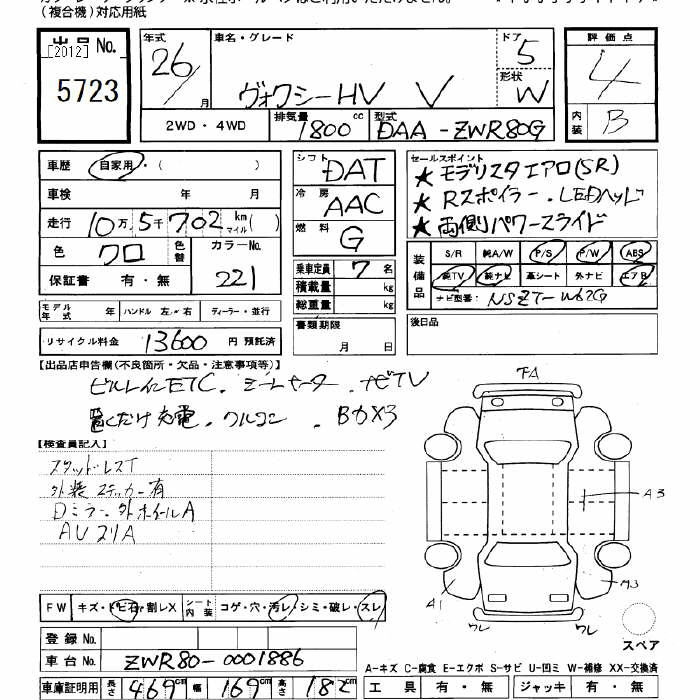 (複合機)対応用紙
出品No. [2012]
5723
年式 26/ 月
車名・グレード
ヴォクシーHV V
ドア 5
形状 W
評価点 4
内装 B
2WD・4WD
排気量 1800 cc
型式 DAA-ZWR80G
車歴 自家用・( )
車検 年 月
走行 10万5千702 km マイル( )
色 クロ 色替 カラーNo. 221
保証書 有・無
シフト DAT
冷房 AAC
燃料 G
乗車定員 7 名
積載量 kg
総重量 kg
セールスポイント
★モデリスタエアロ(SR)
★Rスポイラー・LEDヘッド
★両側パワースライド
装備品
S/R 純A/W P/S P/W ABS
純TV 純ナビ 革シート 外ナビ エアB
ナビ型番: NSZT-W62G
モデル年式 年 ハンドル 左・右 ディーラー・並行
リサイクル料金 13600 円 預託済
書類期限 月 日
後日品
【出品店申告欄(不良箇所・欠品・注意事項等)】
ビルトインETC・シートヒーター・ナビTV
置くだけ充電・クルコン・Bカメラ
【検査員記入】
スタッドレスT
外装ステッカー有
Dミラー・外ホイールA
FA
A3
A1
ワレ
ワレ
スペア
FW キズ・トビ石・割レX シート内装 コゲ・穴・汚レ・シミ・破レ・スレ
登録No.
車台No. ZWR80-0001886
A-キズ C-腐食 E-エクボ S-サビ U-凹ミ W-補修 XX-交換済
車庫証明用 長さ 469cm 幅 169cm 高さ 182cm
工具 有・無 ジャッキ 有・無